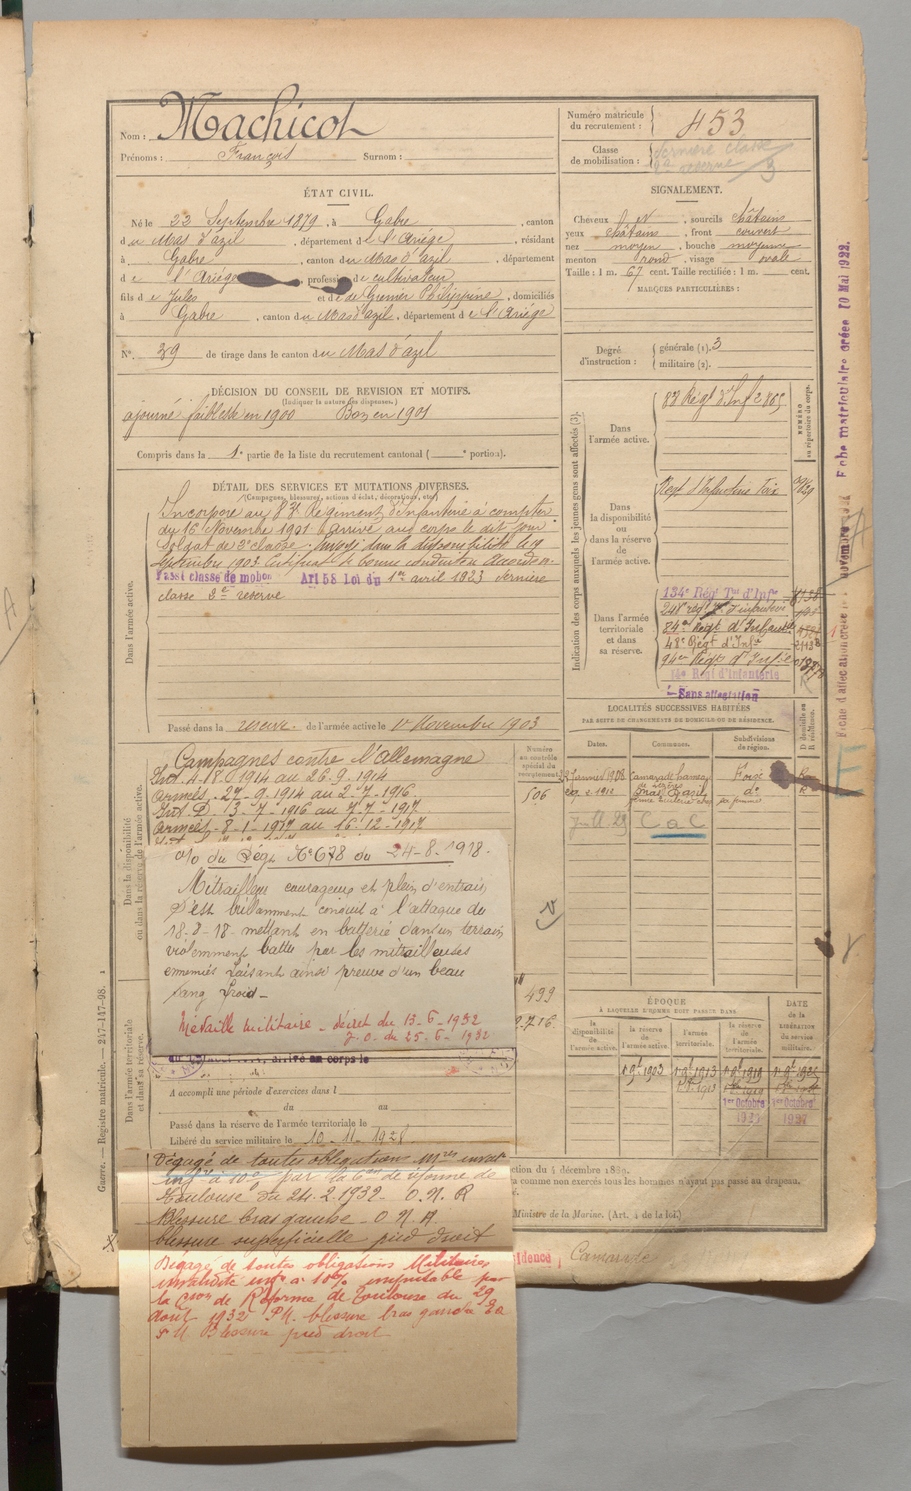 Nom : Machicot
Prénoms : François Surnom :
Numéro matricule du recrutement : 453
Classe de mobilisation : dernière classe
2e réserve
ÉTAT CIVIL.
Né le 22 Septembre 1879, à Gabre, canton
du Mas d'azil, département de l'Ariége, résidant
à Gabre, canton du Mas d'azil, département
de l'Ariége, profession de cultivateur
fils de Jules et de de Grenier Philippine, domiciliés
à Gabre, canton du Mas d'azil, département de l'Ariége
N° 39 de tirage dans le canton du Mas d'azil
SIGNALEMENT.
Cheveux , sourcils châtains
yeux châtains, front couvert
nez moyen, bouche moyenne
menton rond, visage ovale
Taille : 1 m. 67 cent. Taille rectifiée : 1 m. cent.
MARQUES PARTICULIÈRES :
Degré d'instruction : générale (1). 3
militaire (2).
DÉCISION DU CONSEIL DE REVISION ET MOTIFS.
(Indiquer la nature des dispenses.)
ajourné faiblesse en 1900 Bon en 1901
Compris dans la 1e partie de la liste du recrutement cantonal ( e portion).
DÉTAIL DES SERVICES ET MUTATIONS DIVERSES.
(Campagnes, blessures, actions d'éclat, décorations, etc.)
Dans l'armée active.
Incorporé au Régiment d'infanterie à compter
du 16 Novembre 1901. Arrivé au corps le dit jour
Soldat de 2e classe. Envoyé dans la disponibilité le 19
Septembre 1903. Certificat de bonne conduite Accordé.
Passé classe de mobon Art 58 Loi du 1er avril 1923 dernière
classe 2e réserve
Passé dans la réserve de l'armée active le 1er Novembre 1903
Indication des corps auxquels les jeunes gens sont affectés (3).
NUMÉRO au répertoire du corps.
Dans l'armée active.
Dans la disponibilité ou dans la réserve de l'armée active.
Regt d'Infanterie Foix
Dans l'armée territoriale et dans sa réserve.
134e Régt Tal d'Infie
84e Régt d'Infanterie
48e Régt d'Infie
94e Régt d'Infie
Régt d'Infanterie
Sans affectation
LOCALITÉS SUCCESSIVES HABITÉES
PAR SUITE DE CHANGEMENTS DE DOMICILE OU DE RÉSIDENCE.
Dates. Communes. Subdivisions de région. D domicile ou R résidence.
Camarade Foix
Mas d'azil do R
CaC
Dans la disponibilité ou dans la réserve de l'armée active.
Numéro au contrôle spécial du recrutement.
506
Campagnes contre l'allemagne
Int. 4-8-1914 au 26-9-1914
Armées. 27-9-1914 au 2-7-1916
Int. D. 3-7-1916 au 7-7-1917
Armées. 8-1-1917 au 16-12-1917
o/o du Régt No 678 du 24-8-1918.
Mitrailleur courageux et plein d'entrain
S'est brillamment conduit à l'attaque du
18-8-18 mettant en batterie dans un terrain
violemment battu par les mitrailleuses
ennemies faisant ainsi preuve d'un beau
sang froid -
Médaille militaire - décret du 13-6-1932
J.O. du 25-6-1932
499
arrivé au corps le
Dans l'armée territoriale et dans sa réserve.
A accompli une période d'exercices dans l
du au
Passé dans la réserve de l'armée territoriale le
Libéré du service militaire le 10-11-1928
ÉPOQUE
À LAQUELLE L'HOMME DOIT PASSER DANS
DATE DE LA LIBÉRATION DU SERVICE MILITAIRE.
la disponibilité de l'armée active. la réserve de l'armée active. l'armée territoriale. la réserve de l'armée territoriale.
1er Octobre 1er Octobre
Dégagé de toutes obligations mres inval.
infre à 10% par la Con de réforme de
Toulouse du 24.2.1932. O.N.R
Blessure bras gauche - O N A
blessure superficielle pied droit
Dégagé de toutes obligations Militaires
invalidité infre à 10% imputable par
la Cson de Réforme de Toulouse du 29
Août 1932 P.M. blessure bras gauche
S M Blessure pied droit
ction du 4 décembre 1889.
a comme non exercés tous les hommes n'ayant pas passé au drapeau.
Ministre de la Marine. (Art. 4 de la loi.)
idence Camarade
Guerre. — Registre matricule. — 247-147-98.
Fiche matriculaire créée 10 Mai 1922.
Fiche d'affectation créée le novembre